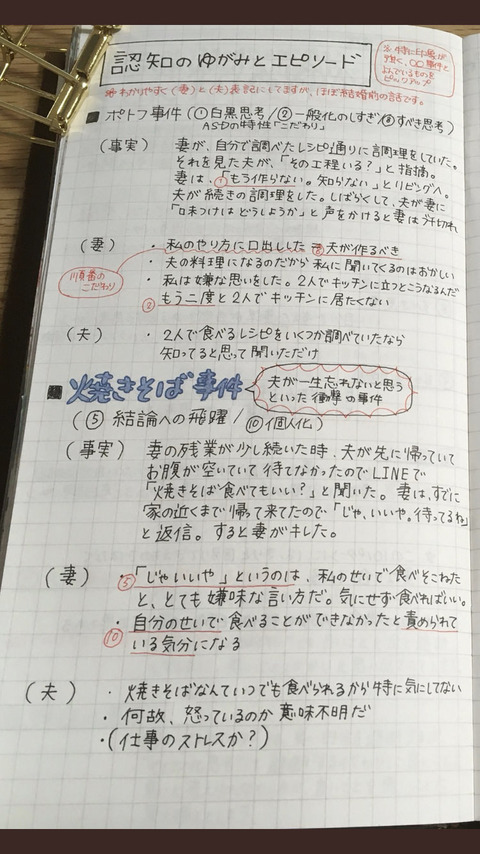 認知のゆがみとエピソード
※特に印象が
強く、〇〇事件と
よんでいるものを
ピックアップ
※わかりやすく(妻)と(夫)表記にしてますが、ほぼ結婚前の話です。
■ポトフ事件(①白黒思考/②一般化のしすぎ/⑧すべき思考)
ASDの特性「こだわり」
(事実) 妻が、自分で調べたレシピ通りに調理をしていた。
それを見た夫が、「その工程いる?」と指摘。
妻は、①「もう作らない。知らない」とリビングへ。
夫が続きの調理をした。しばらくして、夫が妻に
「味つけはどうしようか」と声をかけると妻はブチ切れ
(妻) ・私のやり方に口出しした⑧夫が作るべき
順番の
こだわり
・夫の料理になるのだから私に聞いてくるのはおかしい
・私は嫌な思いをした。2人でキッチンに立つとこうなるんだ
②もう二度と2人でキッチンに居たくない
(夫) ・2人で食べるレシピをいくつか調べていたなら
知ってると思って聞いただけ
■焼きそば事件
夫が一生忘れないと思う
といった衝撃の事件
(⑤結論への飛躍/⑩個人化)
(事実) 妻の残業が少し続いた時、夫が先に帰っていて
お腹が空いていて待てなかったのでLINEで
「焼きそば食べてもいい?」と聞いた。妻は、すでに
家の近くまで帰って来てたので「じゃ、いいや。待ってるね」
と返信。すると妻がキレた。
(妻) ・⑤「じゃいいや」というのは、私のせいで食べそこねた
と、とても嫌味な言い方だ。気にせず食べればいい。
・自分のせいで食べることができなかったと責められて
⑩いる気分になる
(夫) ・焼きそばなんていつでも食べられるから特に気にしてない
・何故、怒っているのか意味不明だ
・(仕事のストレスか?)